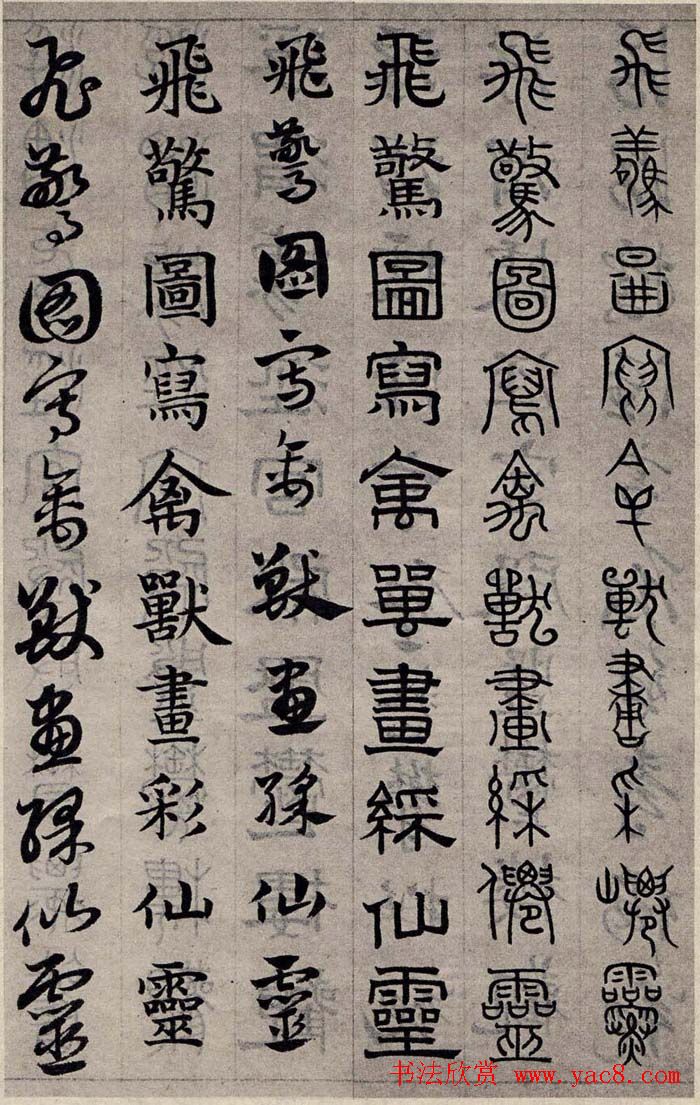 飛驚圖寫禽獸畫采仙靈
飛驚圖寫禽獸畫綵僊靈
飛驚圖寫禽嘼畫綵仙靈
飛驚圖寫禽獸畫綵仙靈
飛驚圖寫禽獸畫彩仙靈
飛驚圖寫禽獸畫綵仙靈
书法欣赏 www.yac8.com